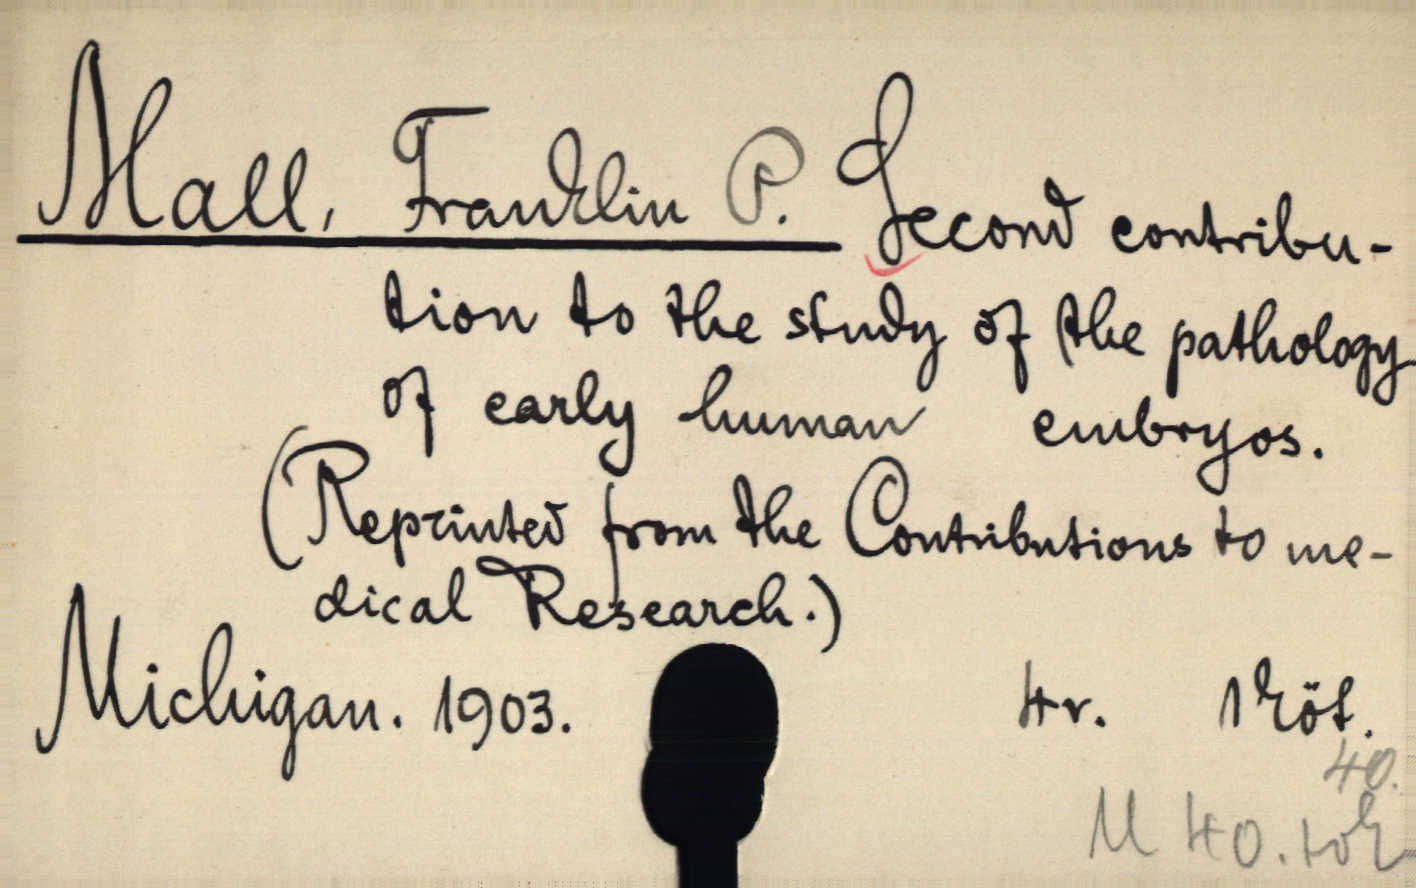 Mall, Franklin P. Second contribu-
tion to the study of the pathology
of early human embryos.
(Reprinted from the Contributions to me-
dical Research.)
Michigan. 1903. 4r. 1 köt.
40.
M 40.